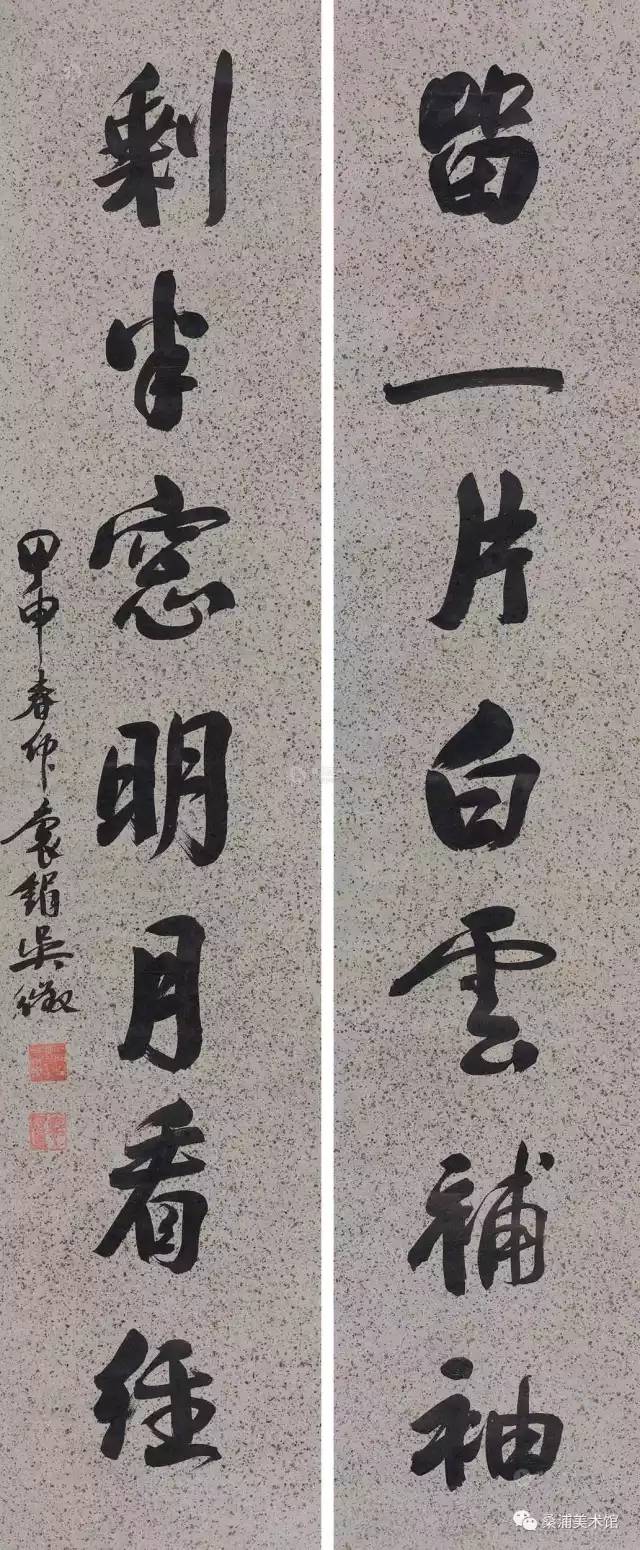 留一片白雲補袖
剩半窓明月看經
甲申春仲袁鋗吳徵
桑浦美术馆